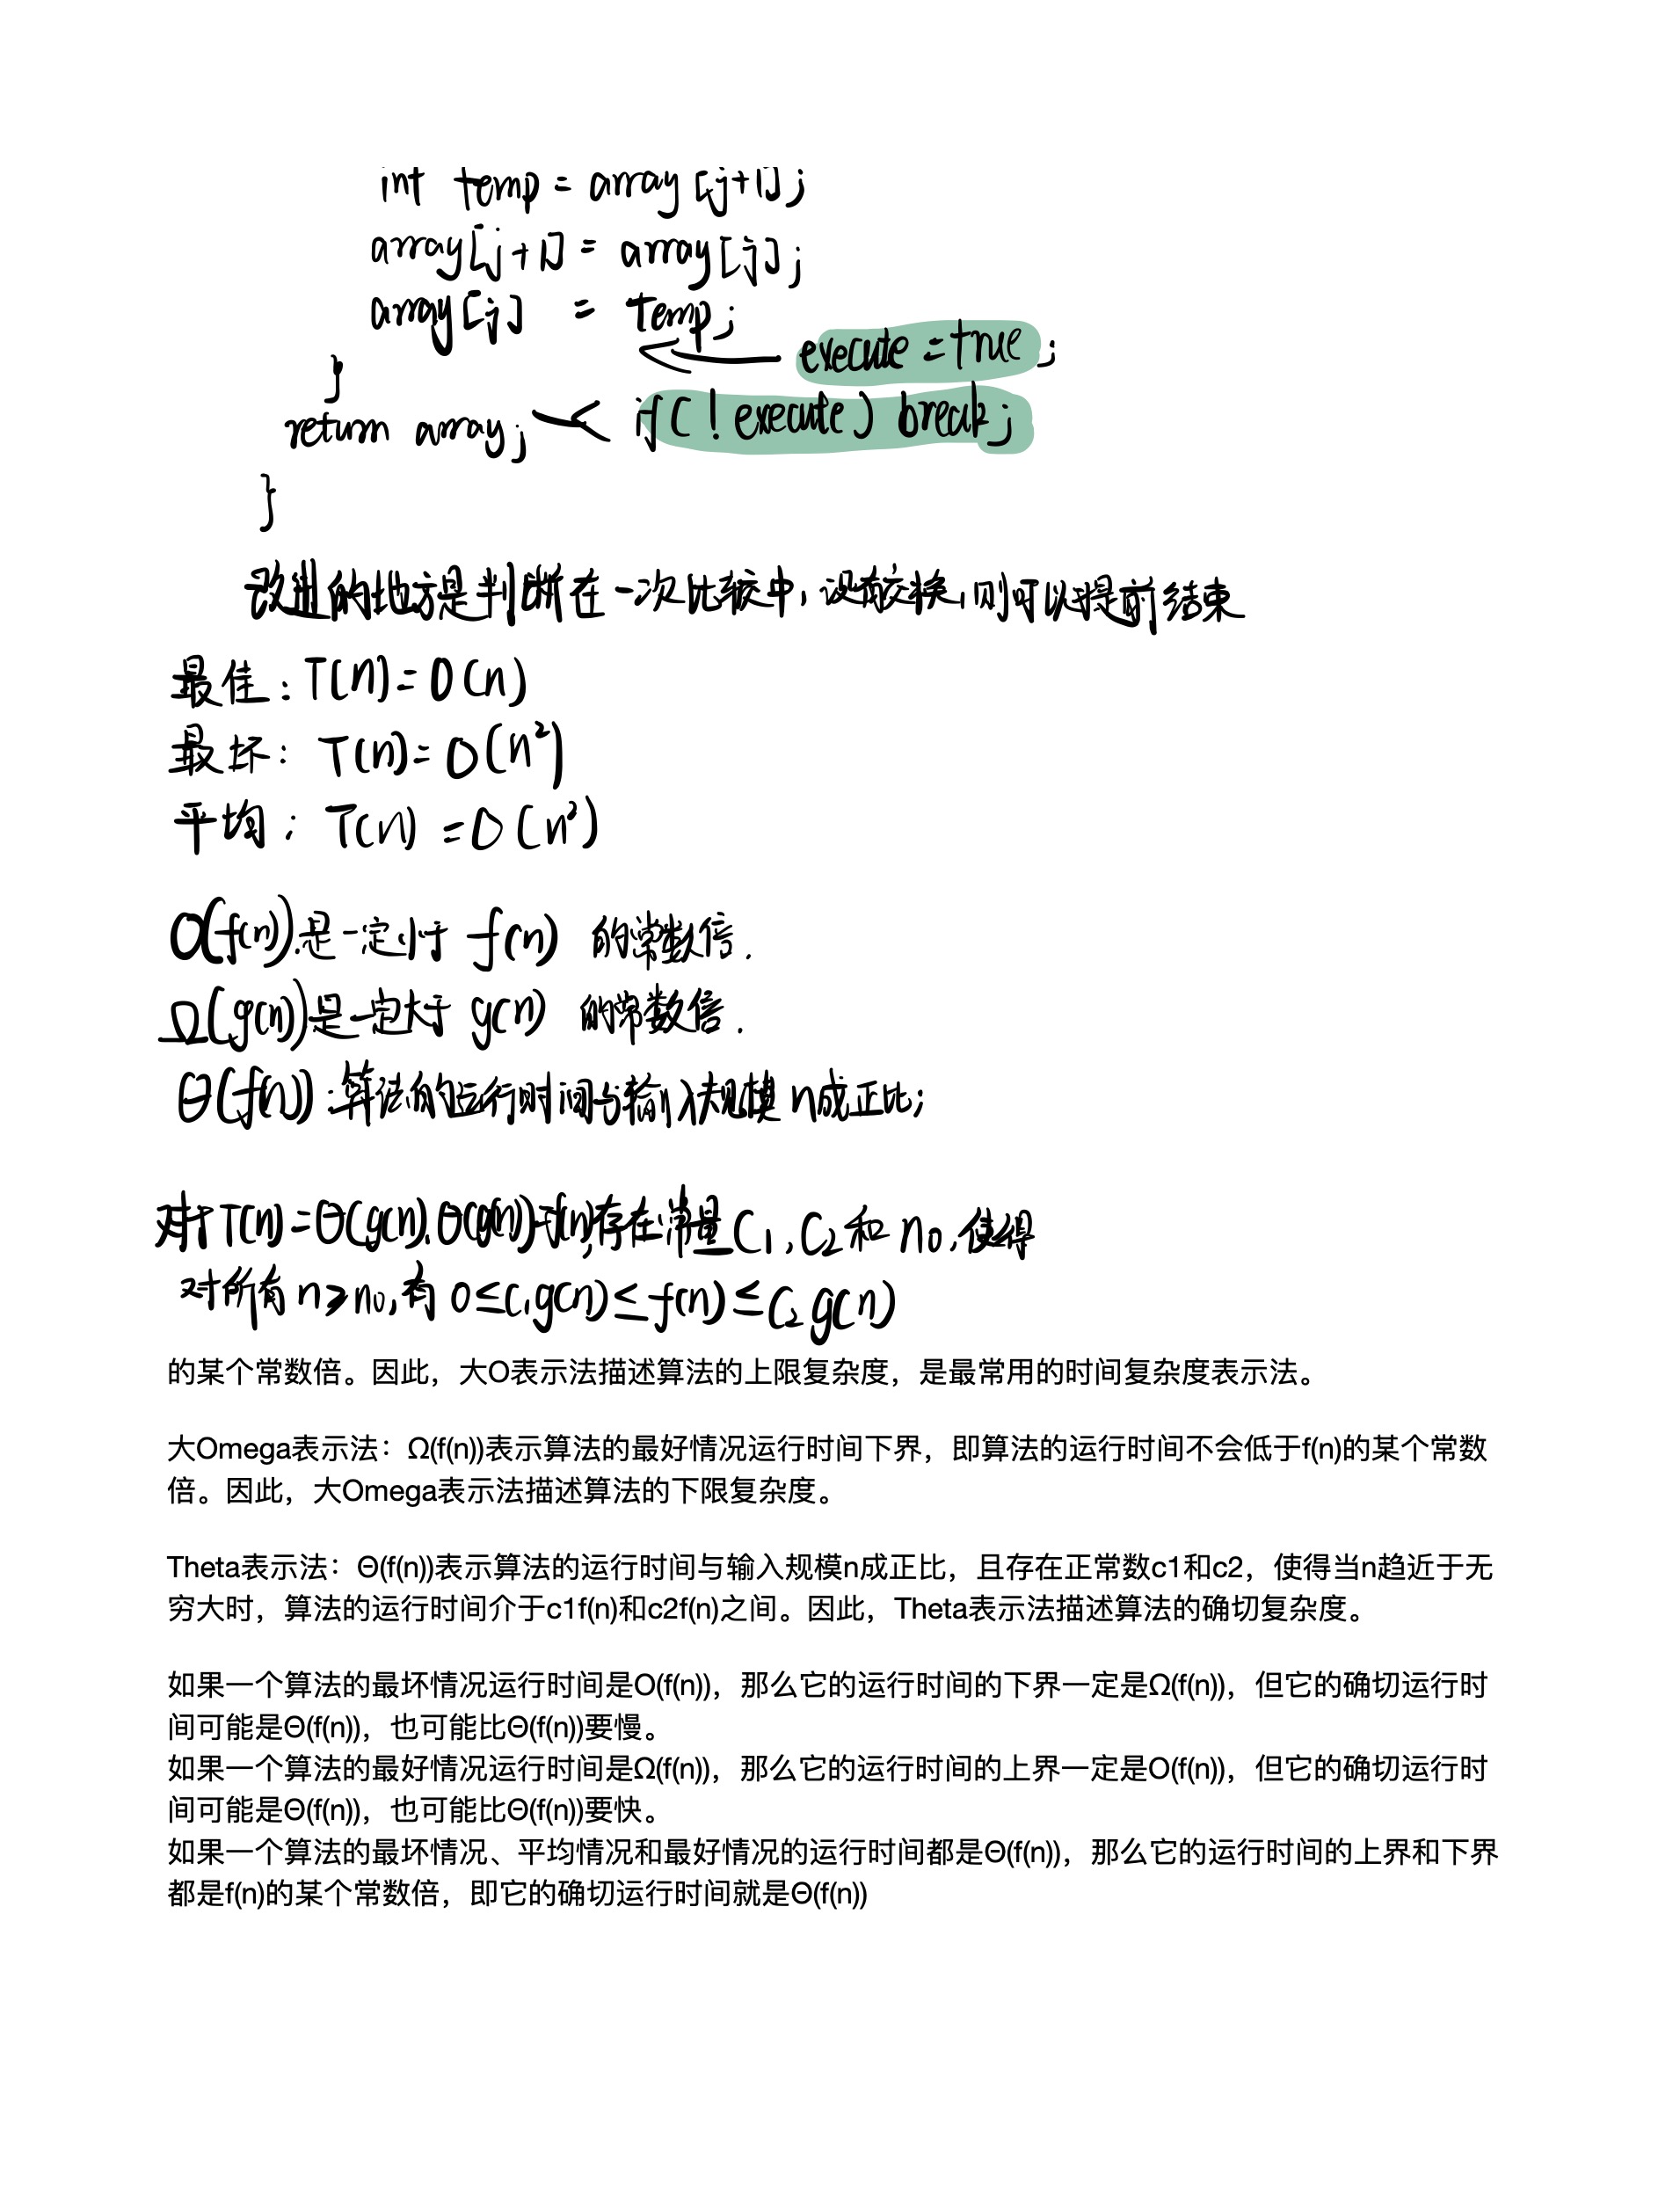 int temp = array[j+1];
array[j+1] = array[j];
array[j] = temp;
execute = true;
}
return array; if(!execute) break;
}
改进的地方是判断在一次比较中,没有交换,则可以提前结束
最佳:T(n)=O(n)
最坏:T(n)=O(n²)
平均:T(n)=O(n²)
O(f(n)).是一定小于 f(n) 的常数倍.
Ω(g(n))是一定大于 g(n) 的常数倍.
Θ(f(n)):算法的运行时间与输入规模n成正比;
对于T(n)=Θ(g(n)),Θ(g(n))=f(n),存在常量C₁,C₂和n₀,使得
对所有n≥n₀,有0≤c₁g(n)≤f(n)≤C₂g(n)
的某个常数倍。因此,大O表示法描述算法的上限复杂度,是最常用的时间复杂度表示法。
大Omega表示法:Ω(f(n))表示算法的最好情况运行时间下界,即算法的运行时间不会低于f(n)的某个常数
倍。因此,大Omega表示法描述算法的下限复杂度。
Theta表示法:Θ(f(n))表示算法的运行时间与输入规模n成正比,且存在正常数c1和c2,使得当n趋近于无
穷大时,算法的运行时间介于c1f(n)和c2f(n)之间。因此,Theta表示法描述算法的确切复杂度。
如果一个算法的最坏情况运行时间是O(f(n)),那么它的运行时间的下界一定是Ω(f(n)),但它的确切运行时
间可能是Θ(f(n)),也可能比Θ(f(n))要慢。
如果一个算法的最好情况运行时间是Ω(f(n)),那么它的运行时间的上界一定是O(f(n)),但它的确切运行时
间可能是Θ(f(n)),也可能比Θ(f(n))要快。
如果一个算法的最坏情况、平均情况和最好情况的运行时间都是Θ(f(n)),那么它的运行时间的上界和下界
都是f(n)的某个常数倍,即它的确切运行时间就是Θ(f(n))